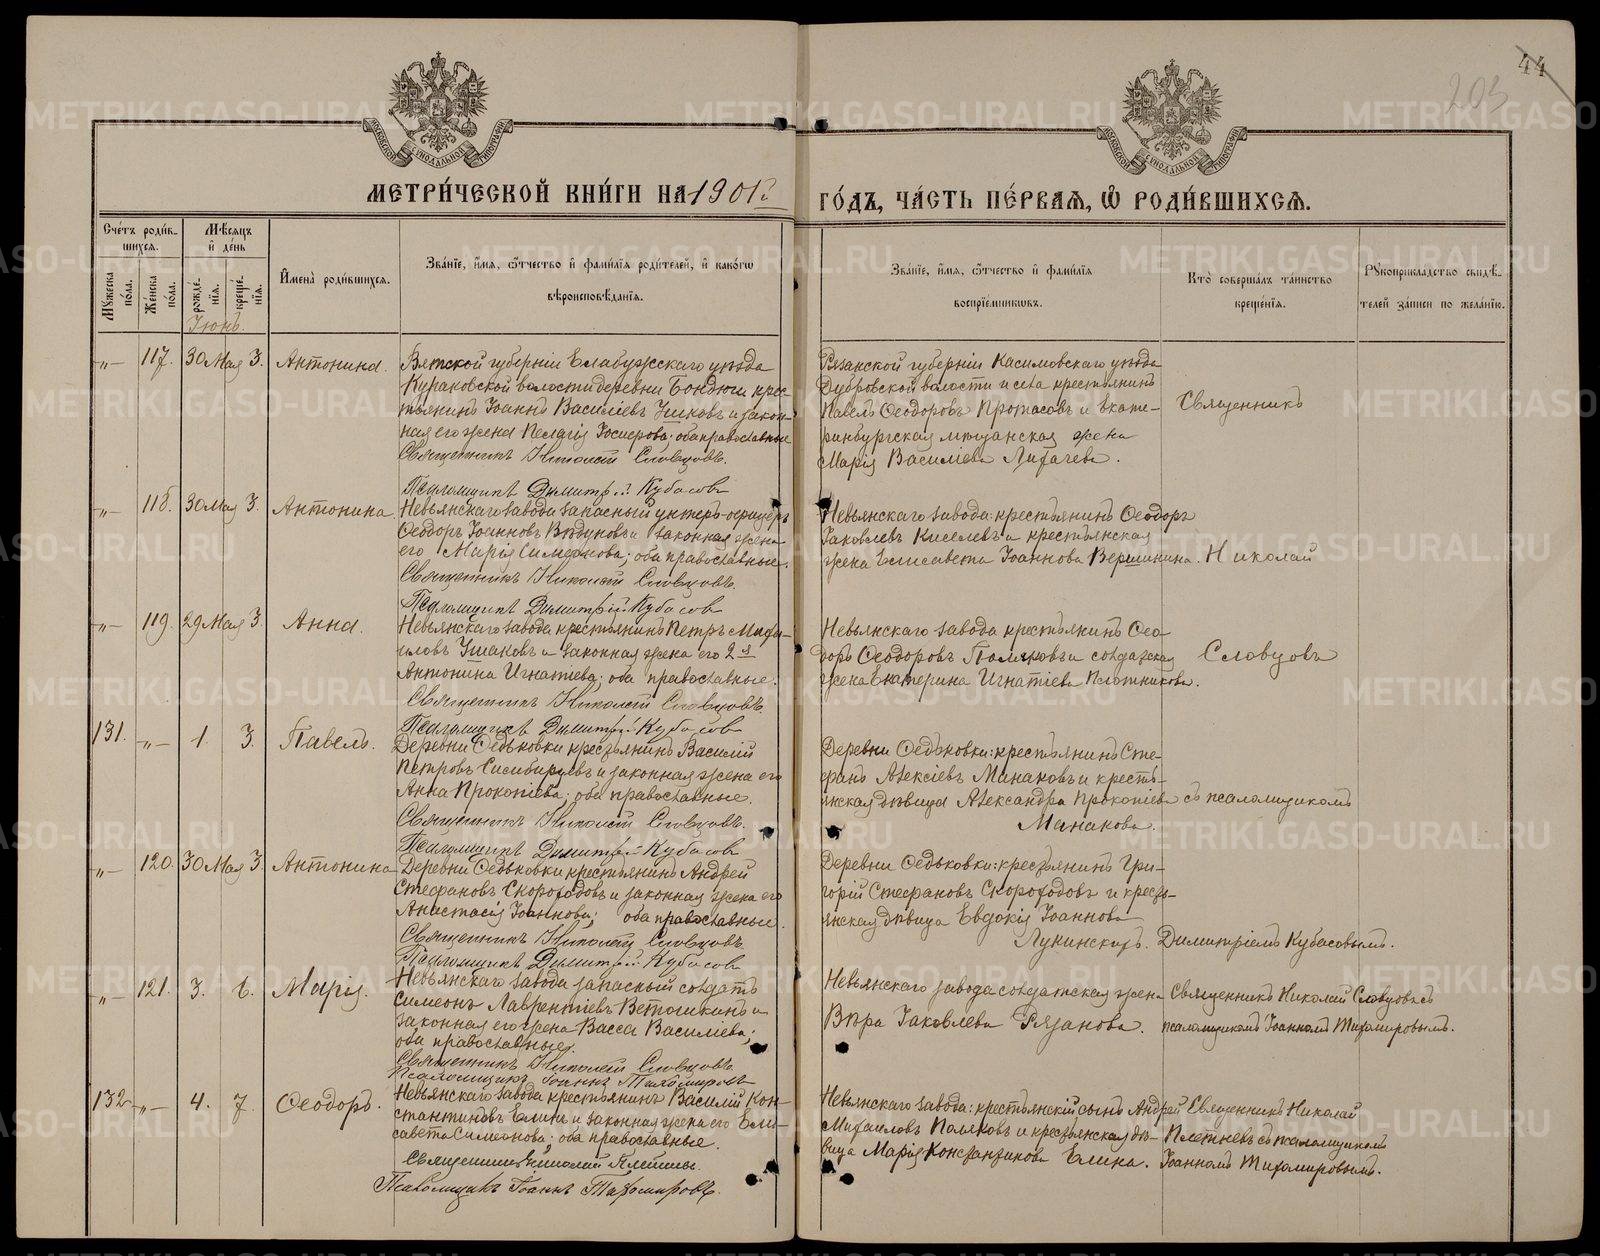 44
203
МЕТРИ́ЧЕСКОЙ КНИ́ГИ НА 1901 г.
ГО́ДЪ, ЧА́СТЬ ПЕ́РВАѦ, Ѽ РОДИ́ВШИХСѦ.
Сче́тъ роди́в-
шихсѧ.
Мѣ́сѧцъ
и҆ де́нь
Мꙋ́жеска по́ла.
Же́нска по́ла.
рожде́-
нїѧ.
креще́-
нїѧ.
И҆мена̀ роди́вшихсѧ.
Зва́нїе, и҆́мѧ, ѻ҆́тчество и҆ фами́лїѧ роди́телей, и҆ како́гѡ
вѣроисповѣ́данїѧ.
Зва́нїе, и҆́мѧ, ѻ҆́тчество и҆ фами́лїѧ
воспрїе́мниковъ.
Кто̀ соверша́лъ та́инство
креще́нїѧ.
Рꙋкоприкла́дство свидѣ́-
телей за́писи по жела́нїю.
Іюнь.
-"- 117. 30 Мая 3. Антонина.
Вятской губерніи Елабужскаго уѣзда
Кураковской волости деревни Бондюги крес-
тьянинъ Іоаннъ Василіевъ Ушковъ и закон-
ная его жена Пелагія; оба православные
Священникъ Николай Словцовъ.
Псаломщикъ Димитрій Кубасовъ
Рязанской губерніи Касимовскаго уѣзда
Дубровской волости и села крестьянинъ
Павелъ Ѳеодоровъ Протасовъ и екате-
ринбургская мѣщанская жена
Марія Василіева Лихачева.
Священникъ
-"- 118. 30 Мая 3. Антонина.
Невьянскаго завода запасный унтеръ-офицеръ
Ѳеодоръ Іоанновъ и законная жена
его Марія Симеонова; оба православные.
Священникъ Николай Словцовъ.
Псаломщикъ Димитрій Кубасовъ
Невьянскаго завода: крестьянинъ Ѳеодоръ
Іаковлевъ Киселевъ и крестьянская
жена Елисавета Іоаннова Вершинина.
Николай
-"- 119. 29 Мая 3. Анна.
Невьянскаго завода крестьянинъ Петръ Миха-
иловъ Ушаковъ и законная жена его 2я
Антонина Игнатіева; оба православные.
Священникъ Николай Словцовъ.
Псаломщикъ Димитрій Кубасовъ
Невьянскаго завода крестьянинъ Ѳео-
доръ Ѳеодоровъ Поляковъ и солдатская
жена Екатерина Игнатіева Плотникова.
Словцовъ
131. -"- 1. 3. Павелъ.
Деревни Ѳедьковки крестьянинъ Василій
Петровъ и законная жена его
Анна Прокопіева; оба православные.
Священникъ Николай Словцовъ.
Псаломщикъ Димитрій Кубасовъ
Деревни Ѳедьковки: крестьянинъ Сте-
фанъ Алексіевъ Манаковъ и кресть-
янская дѣвица Александра Прокопіева
Манакова.
съ псаломщикомъ
-"- 120. 30 Мая 3. Антонина
Деревни Ѳедьковки крестьянинъ Андрей
Стефановъ Скороходовъ и законная жена его
Анастасія Іоаннова; оба православные.
Священникъ Николай Словцовъ
Псаломщикъ Димитрій Кубасовъ
Деревни Ѳедьковки: крестьянинъ Гри-
горій Стефановъ Скороходовъ и кресть-
янская дѣвица Евдокія Іоаннова
Димитріемъ Кубасовымъ.
-"- 121. 3. 6. Марія.
Невьянскаго завода запасный солдатъ
Симеонъ Лаврентіевъ Ветошкинъ и
законная его жена Васса Василіева;
оба православные.
Священникъ Николай Словцовъ
Псаломщикъ Іоаннъ Тихомировъ
Невьянскаго завода солдатская жена
Вѣра Іаковлева Рязанова.
Священникъ Николай Словцовъ съ
псаломщикомъ Іоанномъ Тихомировымъ.
132 -"- 4. 7. Ѳеодоръ.
Невьянскаго завода крестьянинъ Василій Кон-
стантиновъ Елинъ и законная жена его Ели-
савета Симеонова; оба православные.
Священникъ Николай Плетневъ.
Псаломщикъ Іоаннъ Тихомировъ.
Невьянскаго завода: крестьянскій сынъ Андрей
Михаиловъ Поляковъ и крестьянская дѣ-
вица Марія Константинова Елина.
Священникъ Николай
Плетневъ съ псаломщикомъ
Іоанномъ Тихомировымъ.
METRIKI.GASO-URAL.RU